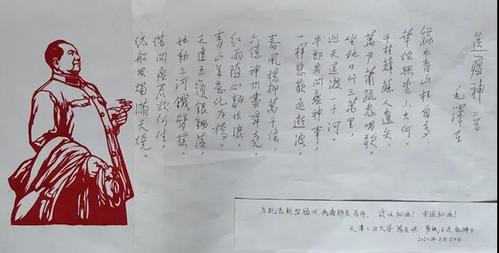 送瘟神 二首
毛泽东
绿水青山枉自多
华佗無奈小虫何。
千村薜荔人遗矢
萬户萧疏鬼唱歌。
坐地日行八万里,
巡天遥 一千河。
牛郎欲問瘟神事,
一样悲歡逐逝波。
春風楊柳萬千條,
六億神州盡舜尧
红雨随心翻作浪,
青山着意化为橋。
天連五嶺銀锄落,
地動三河鐵臂摇。
借問瘟君欲何往,
纸船明烛 天燒。
为抗击新型冠状病毒肺炎而作, 武汉加油!中国加油!
天津工业大学
2020年2月